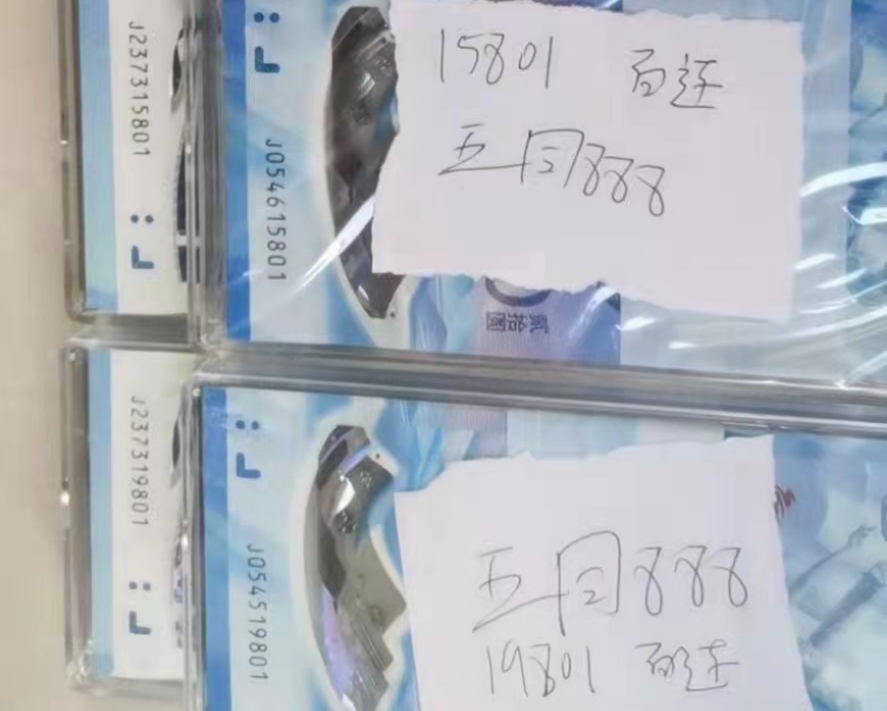 J237315801
J054615801
15801 百连
五同888
贰拾圆
J237319801
J054519801
五同888
19801 百连